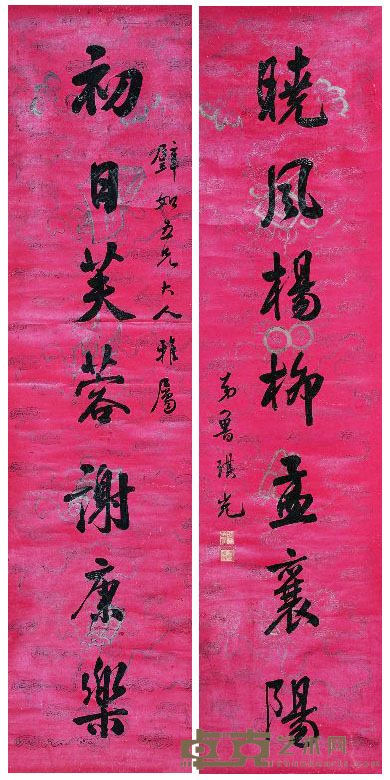 曉風楊柳孟襄陽
弟魯琪光
初日芙蓉謝康樂
璧如五兄大人雅屬
卓克艺术网